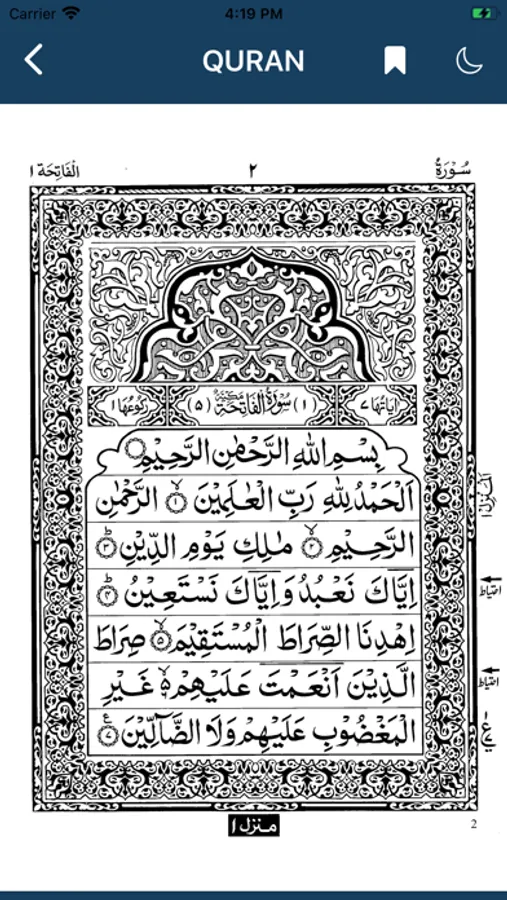 Carrier 4:19 PM
QURAN
سُوۡرَةُ ٢ اَلۡفَاتِحَة ١
اٰيَاتُهَا ٧ (١) سُوۡرَةُ الۡفَاتِحَةِ مَكِّيَّةٌ (٥) رُكُوۡعُهَا ١
بِسۡمِ اللّٰهِ الرَّحۡمٰنِ الرَّحِيۡمِ
اَلۡحَمۡدُ لِلّٰهِ رَبِّ الۡعٰلَمِيۡنَ ۙ‏﴿١﴾ الرَّحۡمٰنِ
الرَّحِيۡمِ ۙ‏﴿٢﴾ مٰلِكِ يَوۡمِ الدِّيۡنِ ؕ‏﴿٣﴾
اِيَّاكَ نَعۡبُدُ وَاِيَّاكَ نَسۡتَعِيۡنُ ؕ‏﴿٤﴾
اِهۡدِنَا الصِّرَاطَ الۡمُسۡتَقِيۡمَ ۙ‏﴿٥﴾ صِرَاطَ
الَّذِيۡنَ اَنۡعَمۡتَ عَلَيۡهِمۡ ۙ‏﴿٦﴾ غَيۡرِ
الۡمَغۡضُوۡبِ عَلَيۡهِمۡ وَلَا الضَّآلِّيۡنَ‏﴿٧﴾
اَلۡمَنۡزِل ١
احتیاط
احتیاط
منزل ١
2